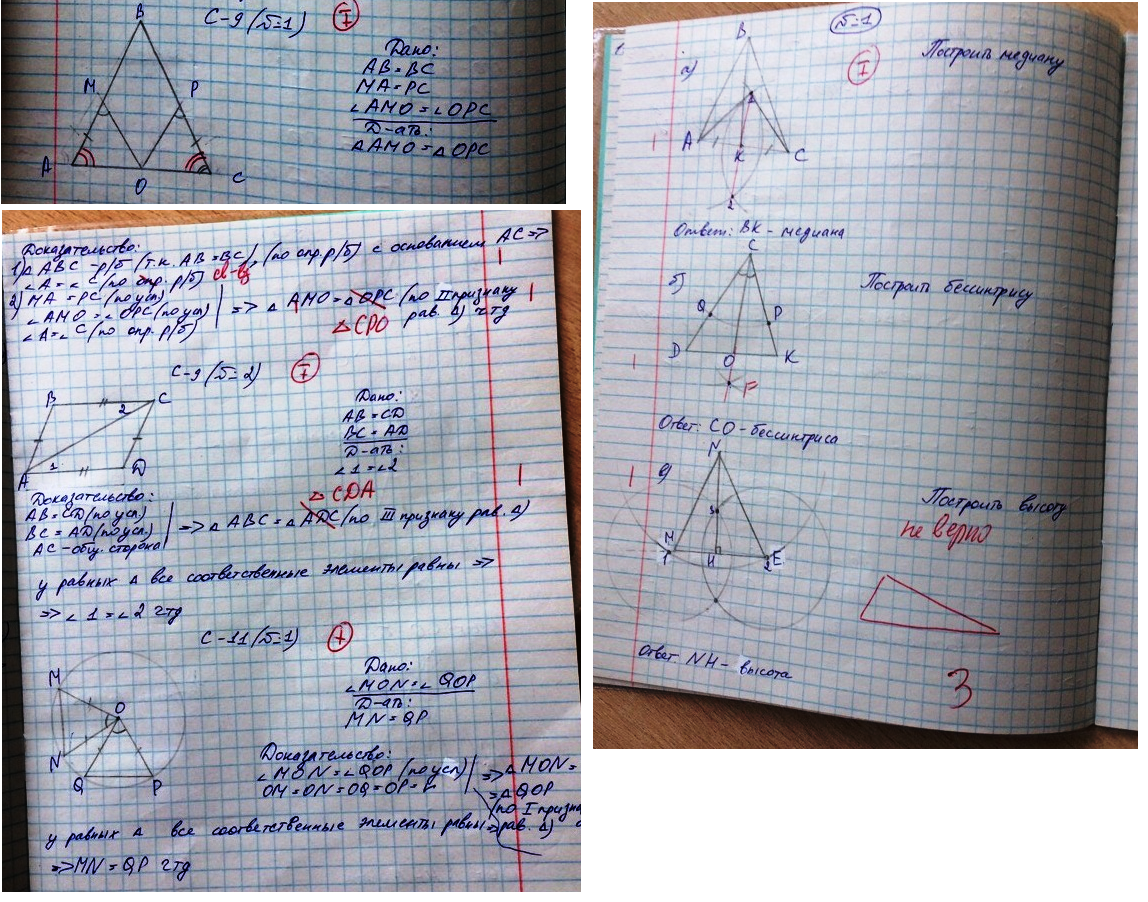 С-9 (№1) I
B
M
P
A
O
C
Дано:
AB = BC
MA = PC
∠AMO = ∠OPC
Д-ать:
△AMO = △OPC
Доказательство:
1) △ABC - р/б (т.к. AB = BC), (по опр. р/б) с основанием AC =>
∠A = ∠C (по опр. р/б) св-в
2) MA = PC (по усл)
∠AMO = ∠OPC (по усл)
∠A = ∠C (по опр. р/б)
=> △AMO = △OPC (по II признаку
рав. △) чтд
△CPO
1
1
С-9 (№2) I
B
C
2
1
A
D
Дано:
AB = CD
BC = AD
Д-ать:
∠1 = ∠2
△CDA
1
Доказательство:
AB = CD (по усл)
BC = AD (по усл)
AC - общ. сторона
=> △ABC = △ADC (по III признаку рав. △)
у равных △ все соответственные элементы равны =>
=> ∠1 = ∠2 чтд
С-11 (№1) I
M
O
N
Q
P
Дано:
∠MON = ∠QOP
Д-ать:
MN = QP
Доказательство:
∠MON = ∠QOP (по усл)
OM = ON = OQ = OP = R
=> △MON =
= △QOP
(по I призна
рав. △)
у равных △ все соответственные элементы равны =>
=> MN = QP чтд
№1
I
1.
Построить медиану
а)
B
1
A
K
C
2
1
Ответ: BK - медиана
б)
C
Построить бессинтрису
Q
P
D
O
K
F
1
Ответ: CO - бессинтриса
в)
N
Построить высоту
не верно
3
M
1
H
2
E
1
Ответ NH - высота
3